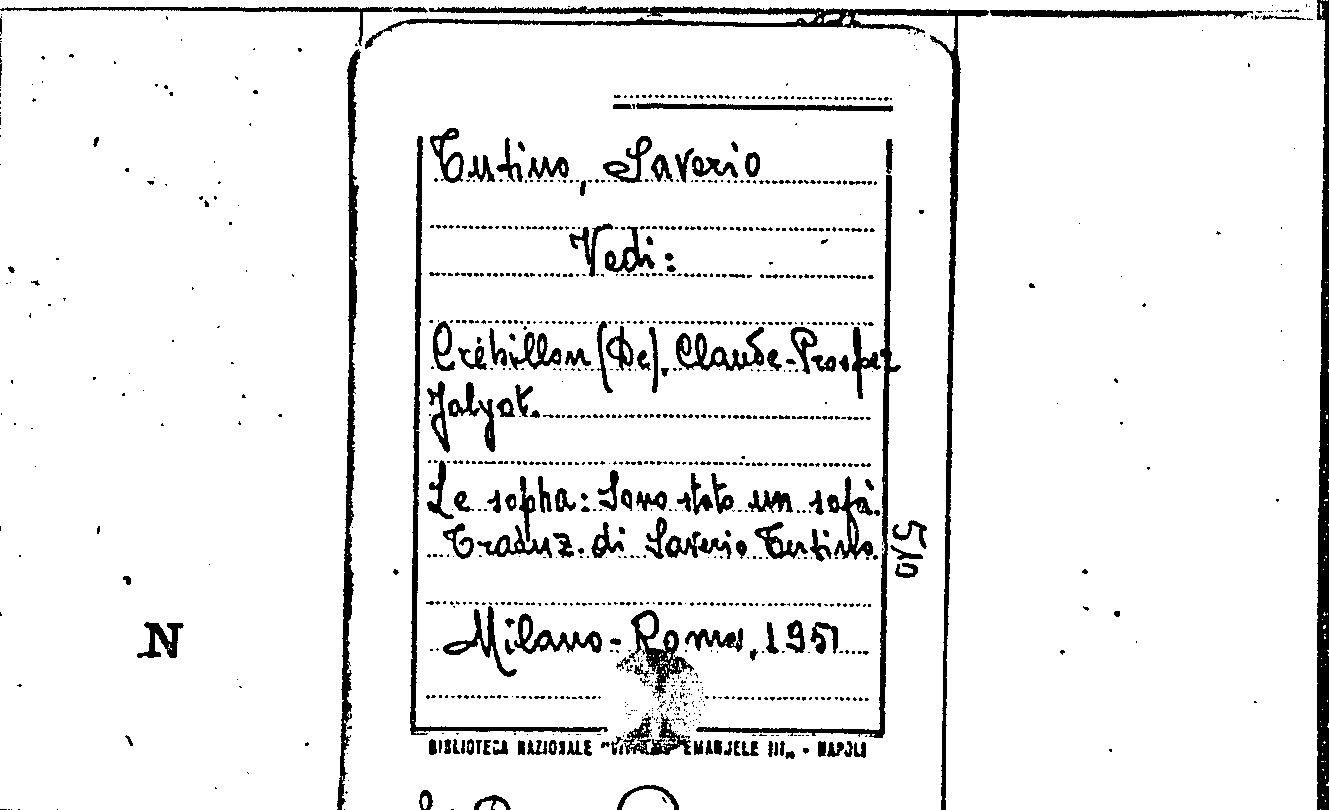 Tutino, Saverio
Vedi:
Crébillon (De), Claude-Prosper
Jolyot.
Le sopha: Sono stato un sofà.
Traduz. di Saverio Tutino.
Milano-Roma, 1951
510
N
BIBLIOTECA NAZIONALE "VITTORIO EMANUELE III„ - NAPOLI